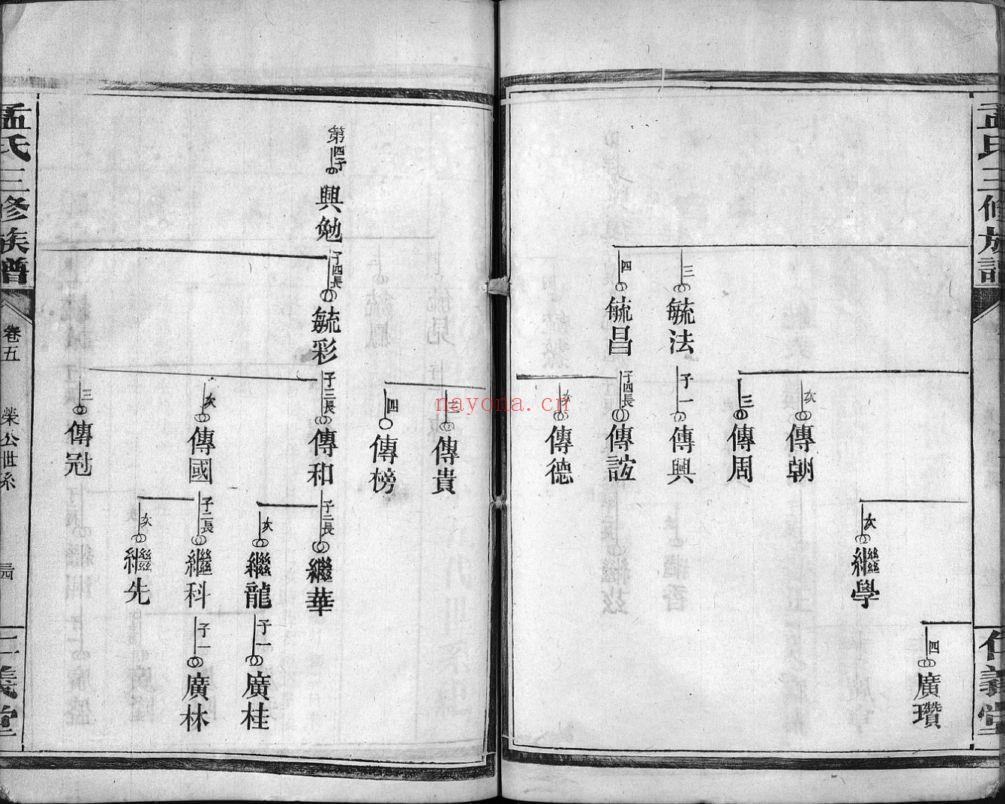 孟氏三修族譜
仁義堂
四
廣瓚
次
繼學
次
傳朝
三
傳周
三
毓法
子一
傳興
四
毓昌
子四長
傳詃
次
傳德
三
傳貴
四
傳榜
第四子
興勉
子四長
毓彩
子三長
傳和
子二長
繼華
次
繼龍
子一
廣桂
次
傳國
子二長
繼科
子一
廣林
次
繼先
三
傳冠
孟氏三修族譜
卷五
榮公世系
仁義堂
nayona.cn